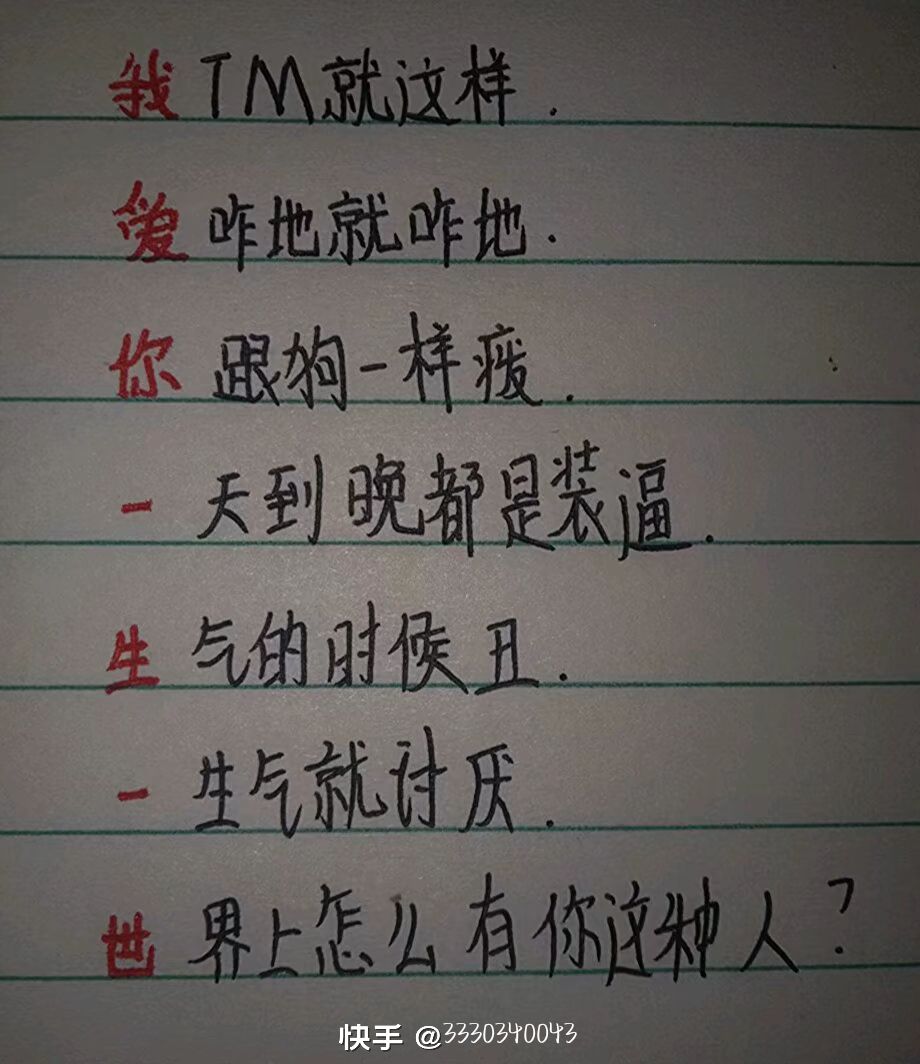 我TM就这样.
爱咋地就咋地.
你跟狗一样痿.
一天到晚都是装逼.
生气的时候丑.
一生气就讨厌.
世界上怎么有你这种人?
快手 @3330340043